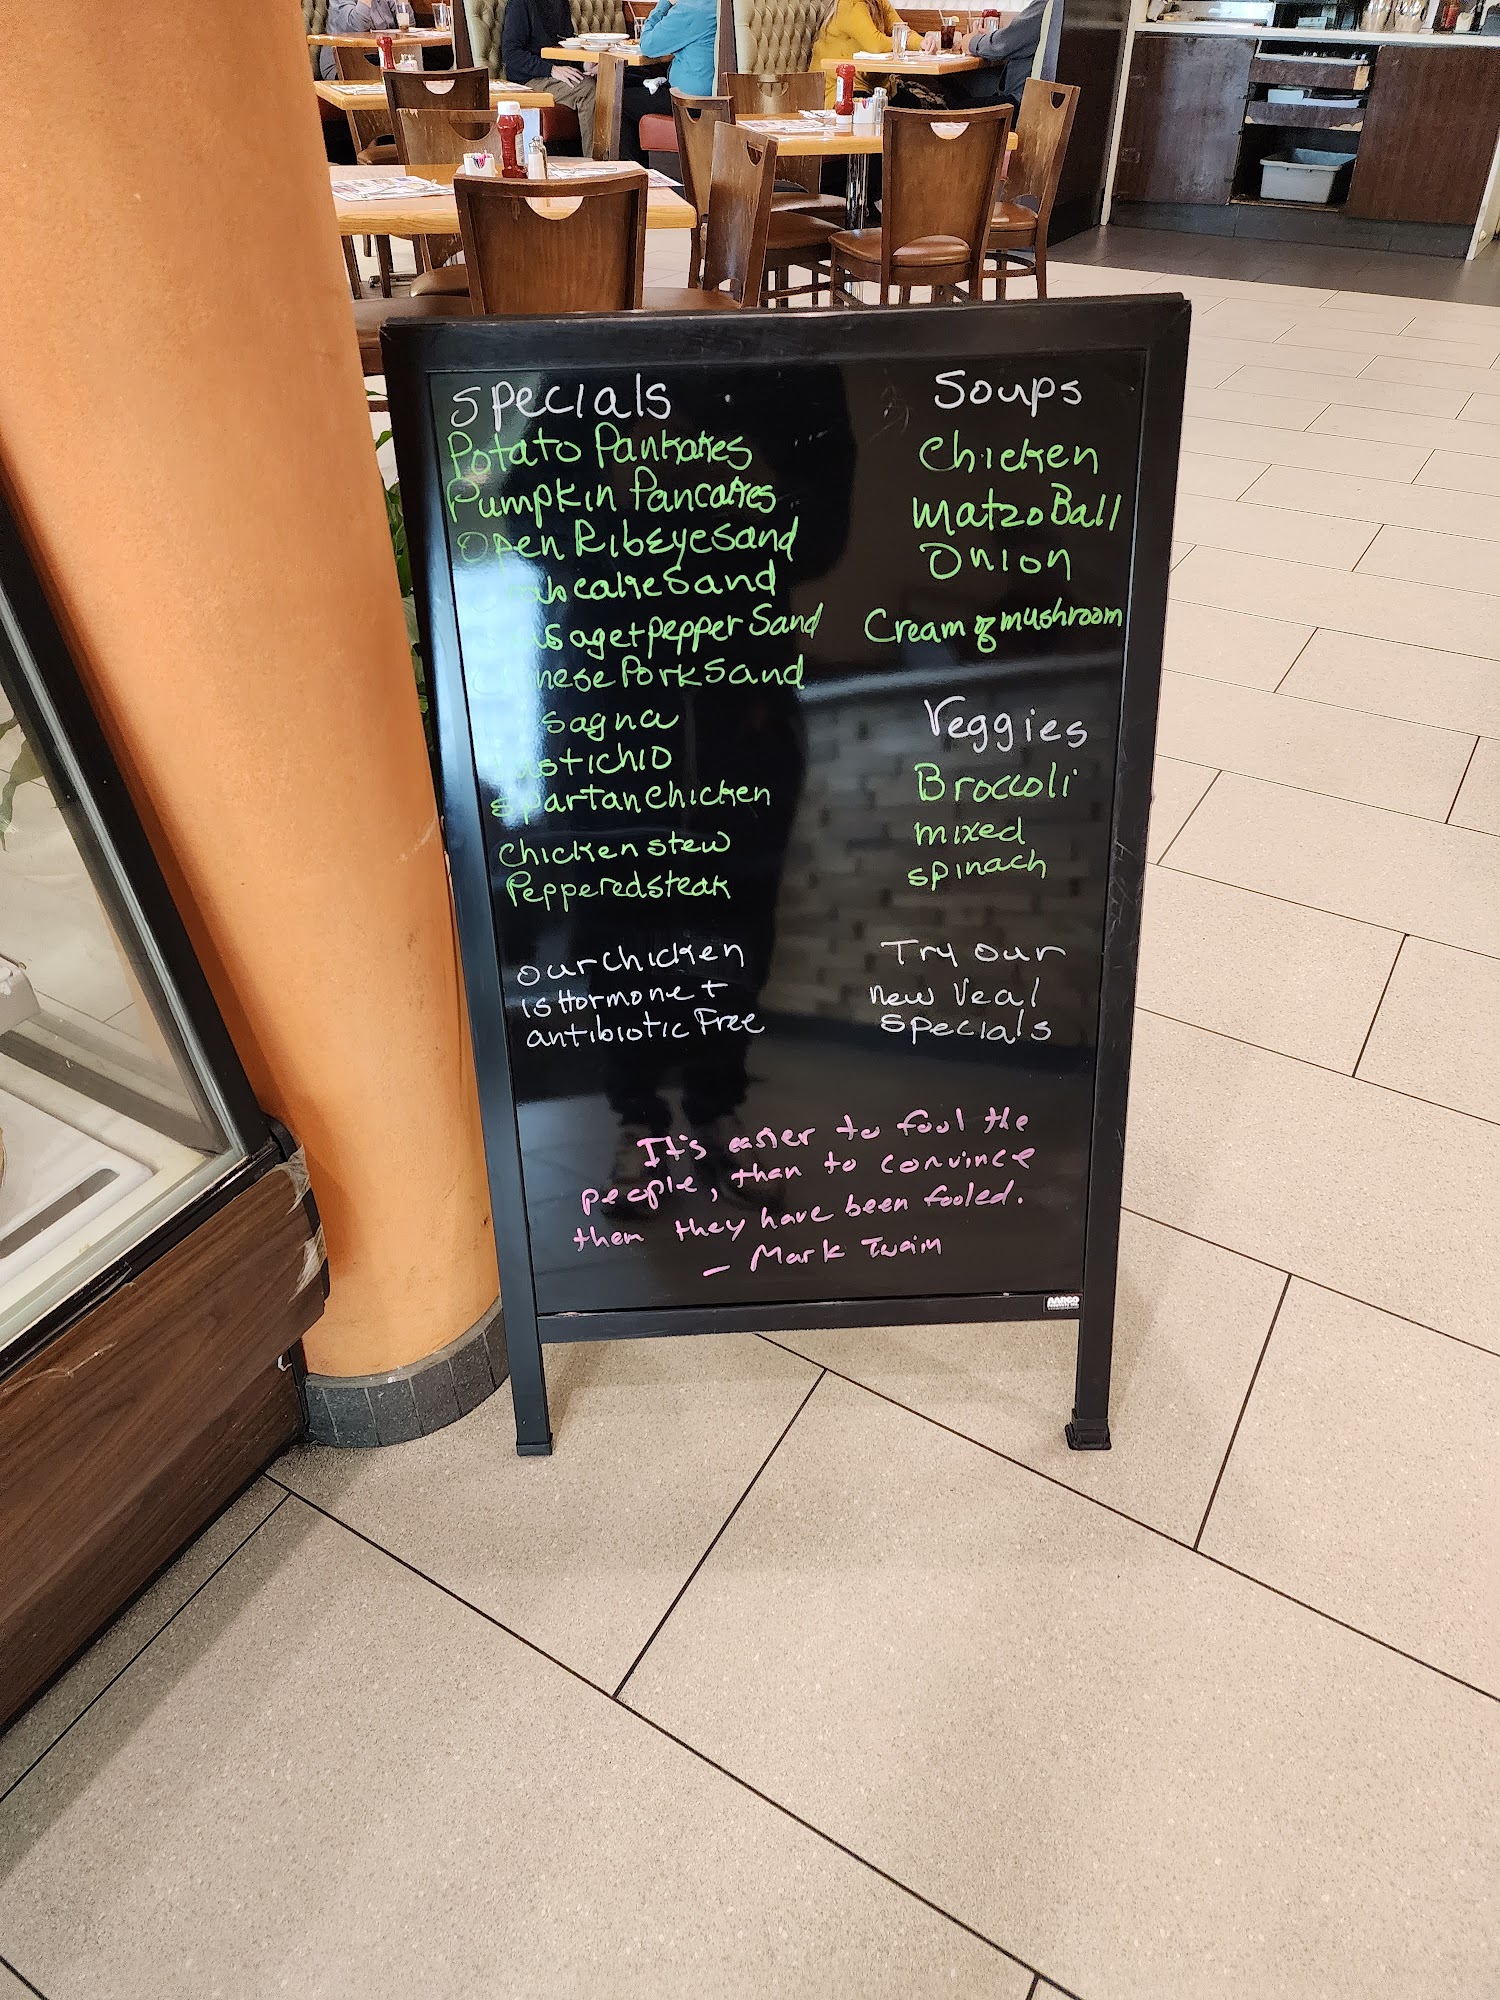 Specials
Potato Pankakes
Pumpkin Pancakes
Open RibEye Sand
cake Sand
Sausage + pepper Sand
Pork Sand
Spartan Chicken
Chicken stew
Peppered steak
our chicken
is Hormone +
antibiotic Free
Soups
Chicken
Matzo Ball
Onion
Cream of mushroom
Veggies
Broccoli
mixed
spinach
Try our
new Veal
specials
It's easier to fool the
people, than to convince
them they have been fooled.
— Mark Twain
AARCO